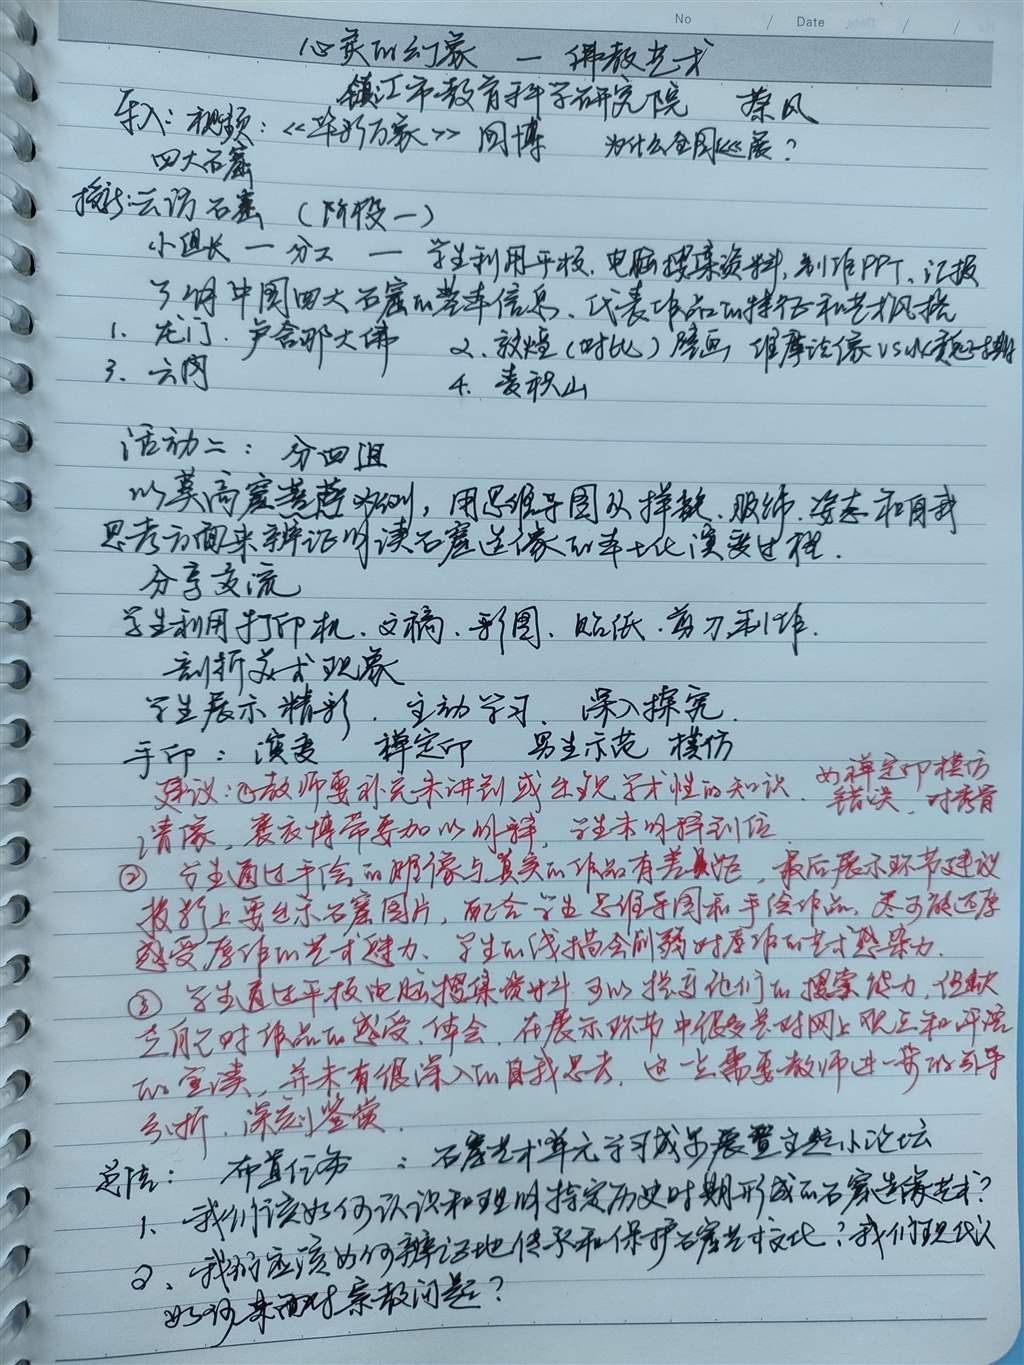 No / Date / /
心灵的幻象 — 佛教艺术
镇江市教育科学研究院 蔡风
导入：视频：《华彩万象》 国博 为什么全国巡展？
四大石窟
授新：云访石窟 （阶段一）
小组长 — 分工 — 学生利用平板、电脑搜集资料，制作PPT、汇报
了解中国四大石窟的基本信息、代表作品的特征和艺术风格
1. 龙门 . 卢舍那大佛 2. 敦煌（对比）壁画 维摩诘像 VS
3. 云冈 4. 麦积山
活动二： 分四组
以莫高窟菩萨为例，用思维导图从样貌、服饰、姿态和自我
思考方面来辩证解读石窟造像的本土化演变过程.
分享交流
学生利用打印机、文稿、彩图、贴纸、剪刀制作.
剖析美术现象
学生展示精彩 . 主动学习 . 深入探究.
手印： 演变 禅定印 男生示范 模仿
建议：①教师要补充未讲到或出现学术性的知识、如禅定印模仿
错误、对秀骨
清像，褒衣博带要加以解释，学生未解释到位
② 学生通过手绘的雕像与真实的作品有差距，最后展示环节建议
投影上要出示石窟图片，配合学生思维导图和手绘作品，尽可能还原
感受原作的艺术魅力、学生的线描会削弱对原作的艺术感染力.
③ 学生通过平板电脑搜集资料可以提高他们的搜索能力，但缺
乏自己对作品的感受、体会，在展示环节中很多是对网上观点和评论
的宣读，并未有很深入的自我思考，这一点需要教师进一步的引导
分析、深刻鉴赏.
总结： 布置任务 ：石窟艺术单元学习成果展暨主题小论坛
1、我们该如何认识和理解特定历史时期形成的石窟造像艺术？
2、我们应该如何辩证地传承和保护石窟艺术文化？我们现代人
如何来面对宗教问题？